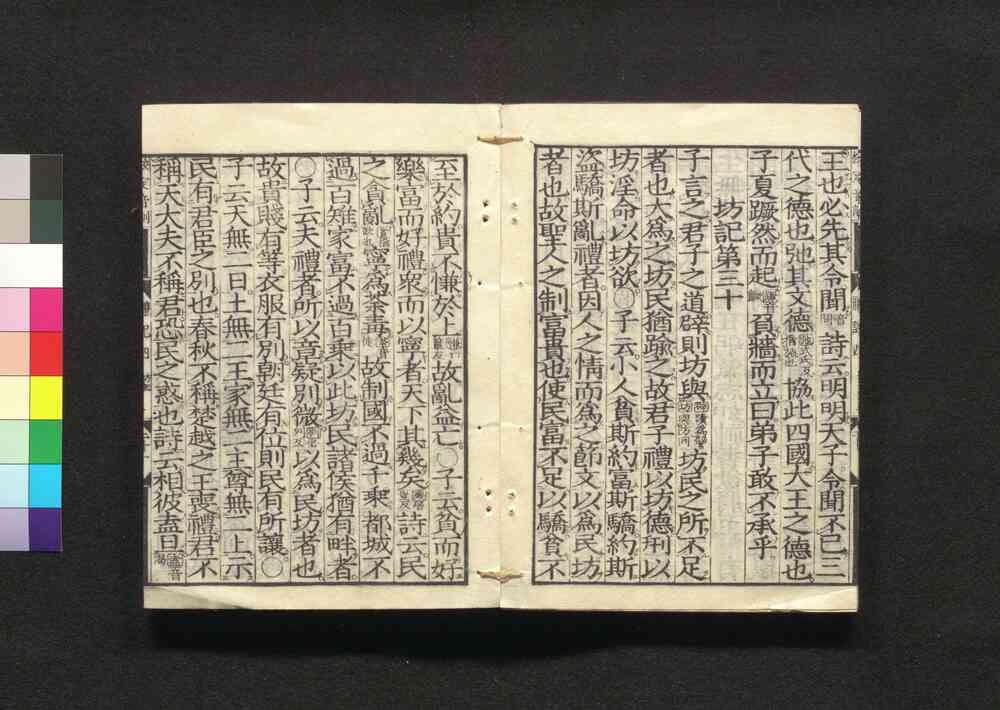 王也必先其令聞詩云明明天子令聞不已三
代之德也弛其文德協此四國大王之德也
子夏蹶然而起負牆而立曰弟子敢不承乎
坊記第三十
子言之君子之道辟則坊與坊民之所不足
者也大爲之坊民猶踰之故君子禮以坊德刑以
坊淫命以坊欲○子云小人貧斯約富斯驕約斯
盜驕斯亂禮者因人之情而爲之節文以爲民坊
者也故聖人之制富貴也使民富不足以驕貧不
至於約貴不慊於上故亂益亡○子云貧而好
樂富而好禮衆而以寧者天下其幾矣詩云民
之貪亂寧爲荼毒故制國不過千乘都城不
過百雉家富不過百乘以此坊民諸侯猶有畔者
○子云夫禮者所以章疑別微以爲民坊者也
故貴賤有等衣服有別朝廷有位則民有所讓○
子云天無二日土無二王家無二主尊無二上示
民有君臣之別也春秋不稱楚越之王喪禮君不
稱天大夫不稱君恐民之惑也詩云相彼盍旦